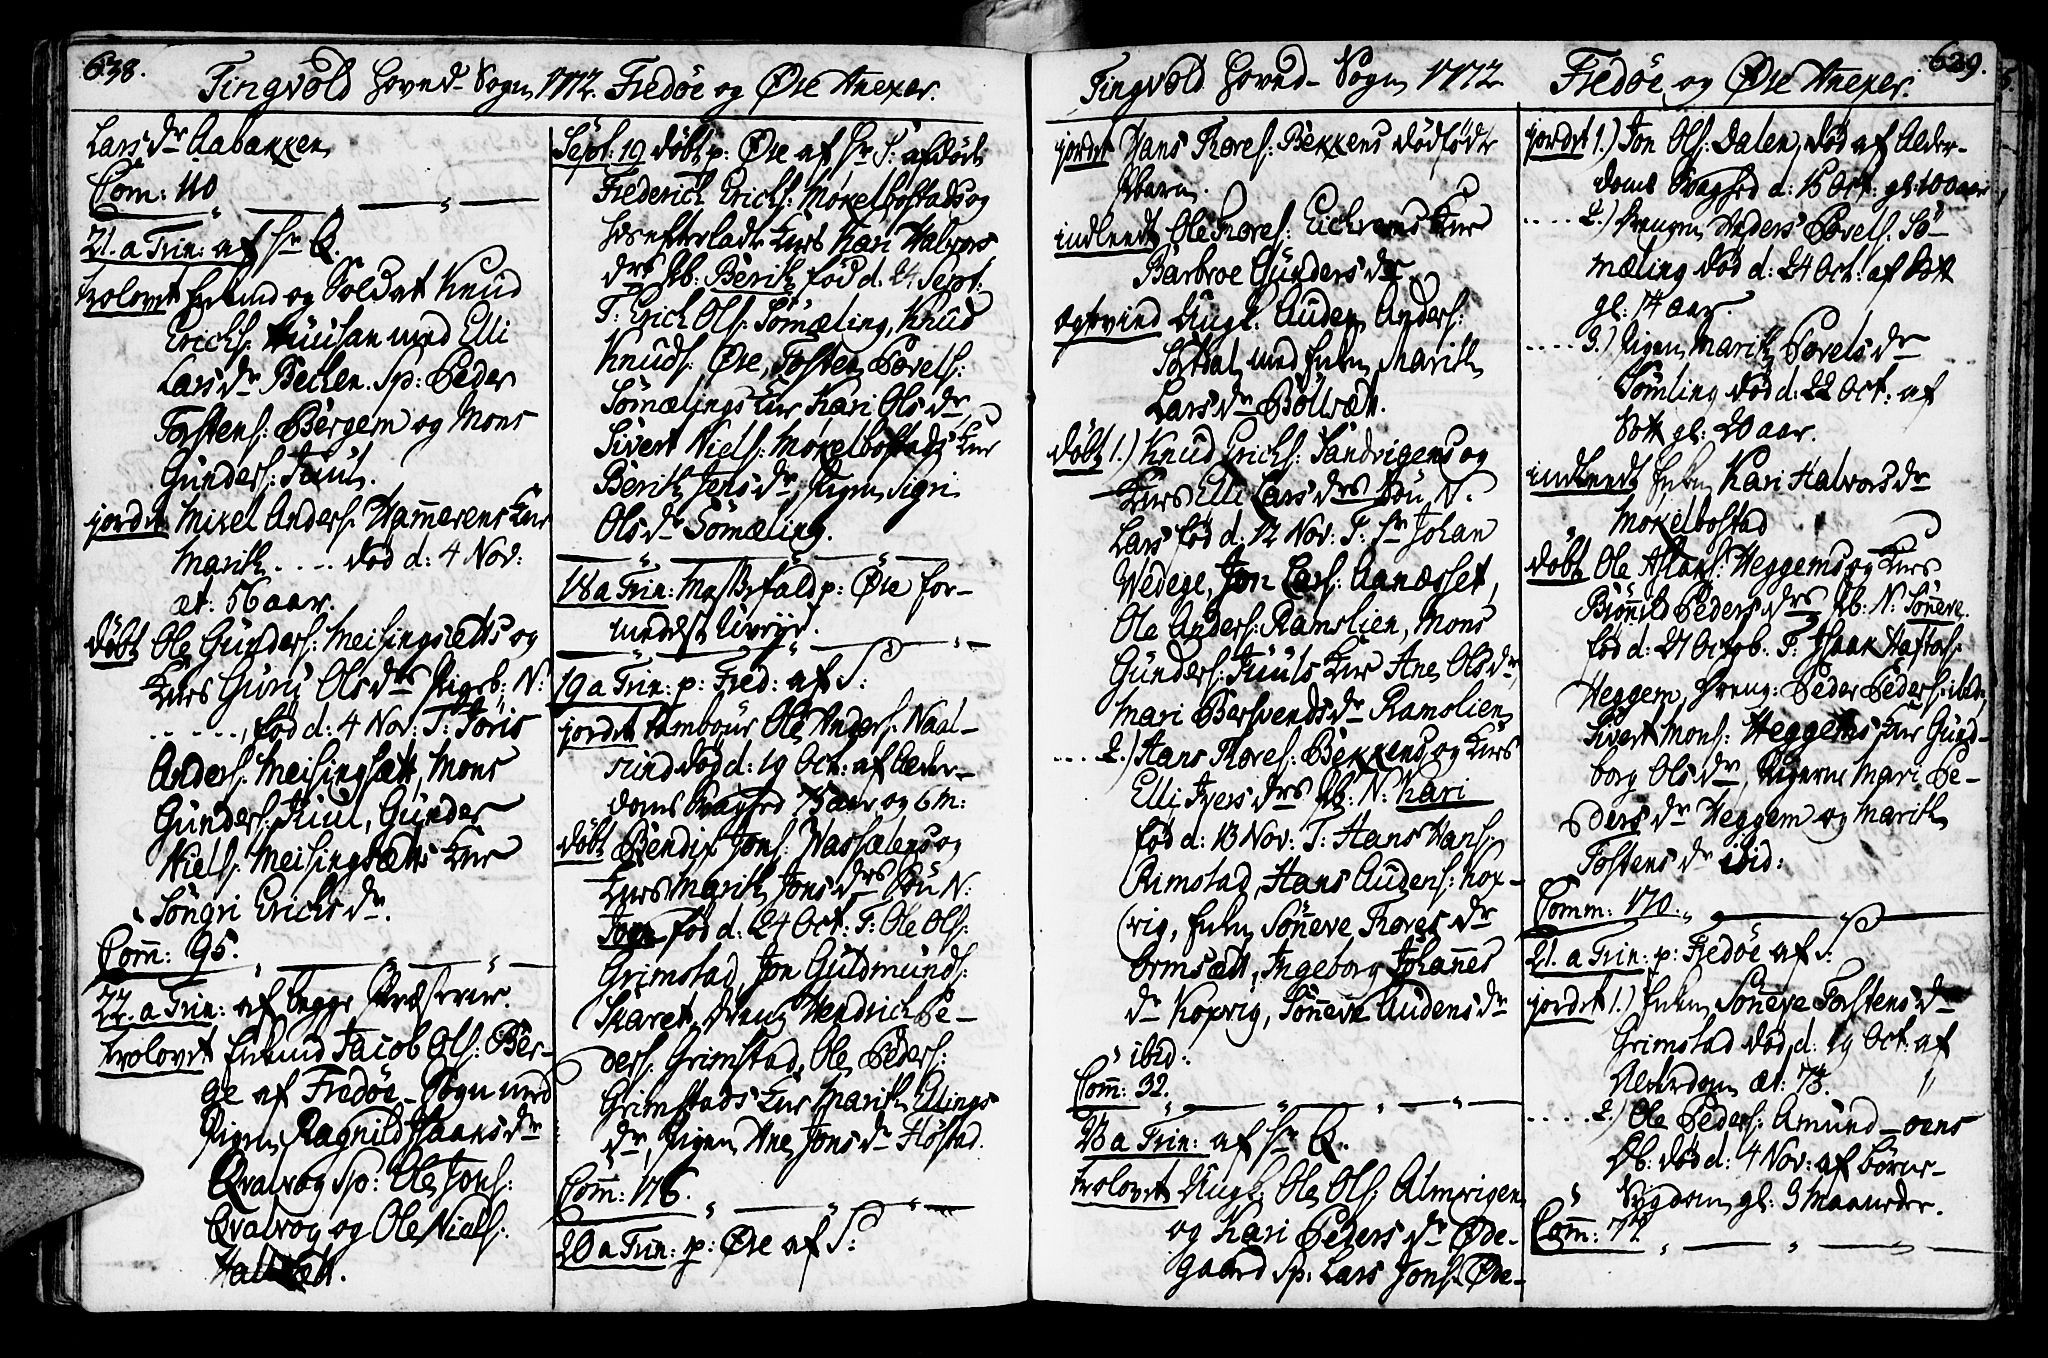 638.
Tingvold Hoved-Sogn 1772. Fredøe og Øre Anexer.
Lars dr Aabakken
Com: 110
21. a Trin: af Hr Q.
trolovet Enkmd og Soldat Knud
Erichs: med Elli
Lars dr Bechen. Sp: Peder
Tostens: Bergem og Mons
Gunders: Juul.
jordet Mikel Anders: Hammerens Kone
Marith .... død d: 4 Nov:
æt: 56 aar.
døbt Ole Gunders: Meisingsætts og
Kones Guru Ols drs Pigeb: N:
......, fød d: 4 Nov: T: Joris
Anders: Meisingsætt, Mons
Gunders: Juul, Gunder
Niels: Meisingsætts Kone
Søngri Erichs dr.
Com: 95.
22. a Trin: af begge Præsterne.
trolovet Enkmd Jacob Ols: Ber-
ge af Fredøe-Sogn med
Pigen Ragnild Isaacs dr
Qvalvog Sp: Ole Jons:
Qvalvog og Ole Niels:
Sept: 19 døbt p: Øre af Hr S: afdøde
Frederich Erichs: Mokelbostads og
hos efterladte Kones Kari Halvors
drs Pb: Berith fød d. 24 Sept:
T: Erich Ols: Sømæling, Knud
Knuds: Øre, Tosten Povels:
Sømælings Kone Kari Ols dr,
Sivert Niels: Mokelbostads Kone
Berith Jens dr, Pigen Sigri
Ols dr Sømæling.
18 a Trin: Messefald p: Øre for-
medelst Uveyr.
19 a Trin: p: Fred: af S:
jordet Tambour Ole Anders: Naal-
sund død d: 19 Oct: af Alder-
doms Svaghed 75 aar og 6 m:
døbt Bendix Jons: Wassætens og
Kones Marith Jons drs Søn N:
fød d: 24 Oct: T: Ole Ols:
Grimstad, Jon Guldmunds:
Skaret, Dreng Hendrich Pe-
ders: Grimstad, Ole Peders:
Grimstads Kone Marith Ellings
dr, Pigen Ane Jons dr Fløstad.
Com: 176.
20 a Trin: p: Øre af S:
Tingvold Hoved-Sogn 1772 Fredøe og Øre Anexer.
629.
jordet Hans Tores: Bekkens dødfødte
Pbarn.
indleedt Ole Tores: Kone
Barbroe Gunders dr
ægtevied Ungk: Auden Anders:
med Enken Marith
Lars dr Bøllsæt.
døbt 1.) Knud Erichs: Sandvigens og
Kones Elli Lars drs Søn N.
Lars fød d. 12 Nov: T: Hr Johan
Wedege, Jon Lars: Aanæsset,
Ole Anders: Ramslien, Mons
Gunders: Juuls Kone Ane Ols dr,
Mari Bersvends dr Ramslien
.... 2.) Hans Tores: Bekkens og Kones
Elli Ivers drs Pb: N: Kari
fød d: 13 Nov: T: Hans Hans:
Rimstad, Hans Audens: Kox-
vig, Enken Sønneve Tores dr
Ormsætt, Ingeborg Johannes
dr Koxvig, Sønneve Audens dr
ibid:
Com: 32.
23 a Trin: af Hr Q.
trolovet Ungk: Ole Ols: Almvigen
og Kari Peders dr Øde-
gaard Sp: Lars Jons: Øde-
jordet 1.) Jon Ols: Dalen, død af Alder-
doms Svaghed d: 15 Oct: gl: 100 aar
.... 2.) Drengen Peders Povels: Sø-
mæling død d: 24 Oct: af Sott
gl: 14 aar.
.... 3.) Pigen Marith Povels dr
Sømling død d: 22 Oct: af
Sott gl: 20 aar.
indleedt Enken Kari Halvors dr
Mokelbostad
døbt Ole Heggems og Kones
Peders drs Pb: N: Sønneve
fød d: 27 Octob: T: Isaac
Heggem, Dreng: Peder Peders: ibid,
Sivert Mons: Heggems Kone Gund-
borg Ols dr, Pigerne Mari Pe-
ders dr Heggem og Marith
Tostens dr ibid:
Comm: 170.
21. a Trin: p: Fredøe af S:
jordet 1.) Enken Sønneve Tostens dr
Grimstad død d: 19 Oct: af
Alderdom æt: 73.
.... 2.) Ole Peders: Amund-øens
Db: død d: 4 Nov: af Børne-
Sygdom gl: 3 Maaneder.
Com: 77.